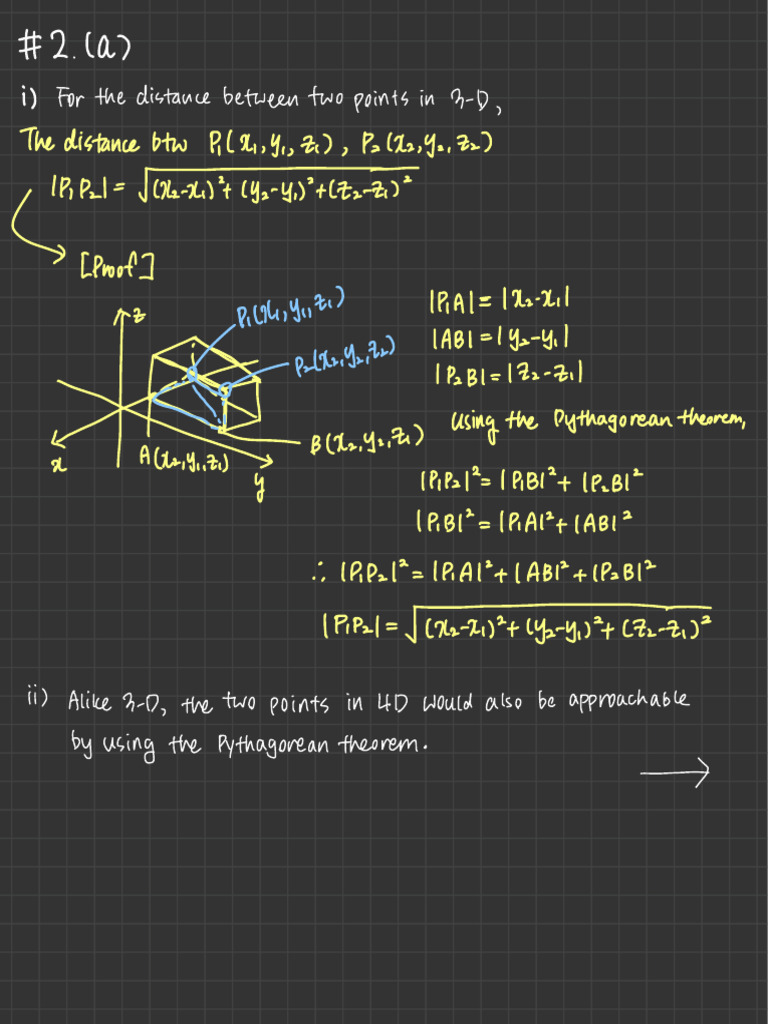 #2.(a)
i) For the distance between two points in 3-D,
The distance btw P₁(x₁,y₁,z₁), P₂(x₂,y₂,z₂)
|P₁P₂| = √((x₂-x₁)²+(y₂-y₁)²+(z₂-z₁)²)
[Proof]
z
P₁(x₁,y₁,z₁)
P₂(x₂,y₂,z₂)
B(x₂,y₂,z₁)
A(x₂,y₁,z₁)
x
y
|P₁A| = |x₂-x₁|
|AB| = |y₂-y₁|
|P₂B| = |z₂-z₁|
Using the Pythagorean theorem,
|P₁P₂|² = |P₁B|² + |P₂B|²
|P₁B|² = |P₁A|² + |AB|²
∴ |P₁P₂|² = |P₁A|² + |AB|² + |P₂B|²
|P₁P₂| = √((x₂-x₁)²+(y₂-y₁)²+(z₂-z₁)²)
ii) Alike 3-D, the two points in 4D would also be approachable
by using the Pythagorean theorem.